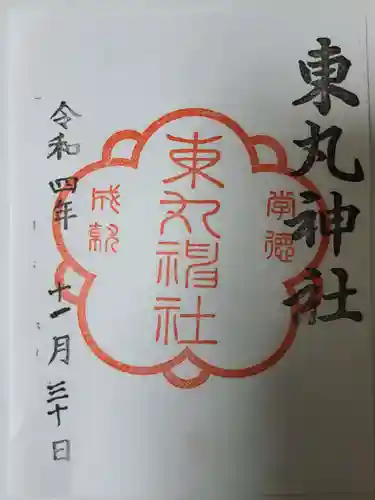 東丸神社
学徳
東丸神社
成就
令和四年 十一月三十日